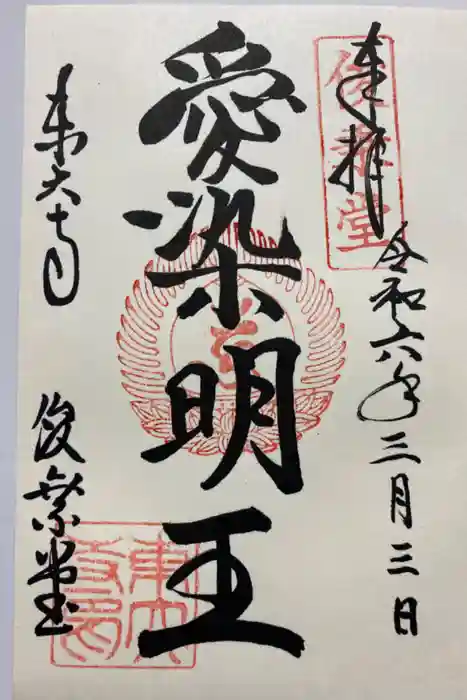 奉拝
俊乗堂
令和六年三月三日
愛染明王
東大寺
俊乗堂